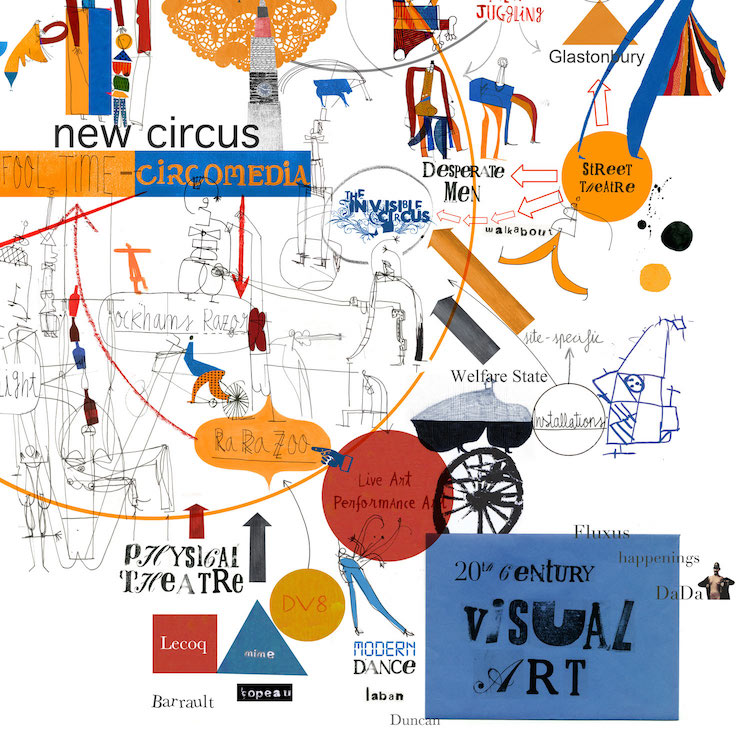 JUGGLING
Glastonbury
new circus
FOOL TIME - CIRCOMEDIA
DESPERATE
MEN
STREET
THEATRE
THE
INVISIBLE
CIRCUS
walkabout
Ockhams Razor
site-specific
Welfare State
installations
light
RaRaZoo
Live Art
Performance Art
PHYSICAL
THEATRE
Fluxus
happenings
DaDa
20th CENTURY
VISUAL
ART
DV8
Lecoq
mime
MODERN
DANCE
Barrault
Copeau
laban
Duncan